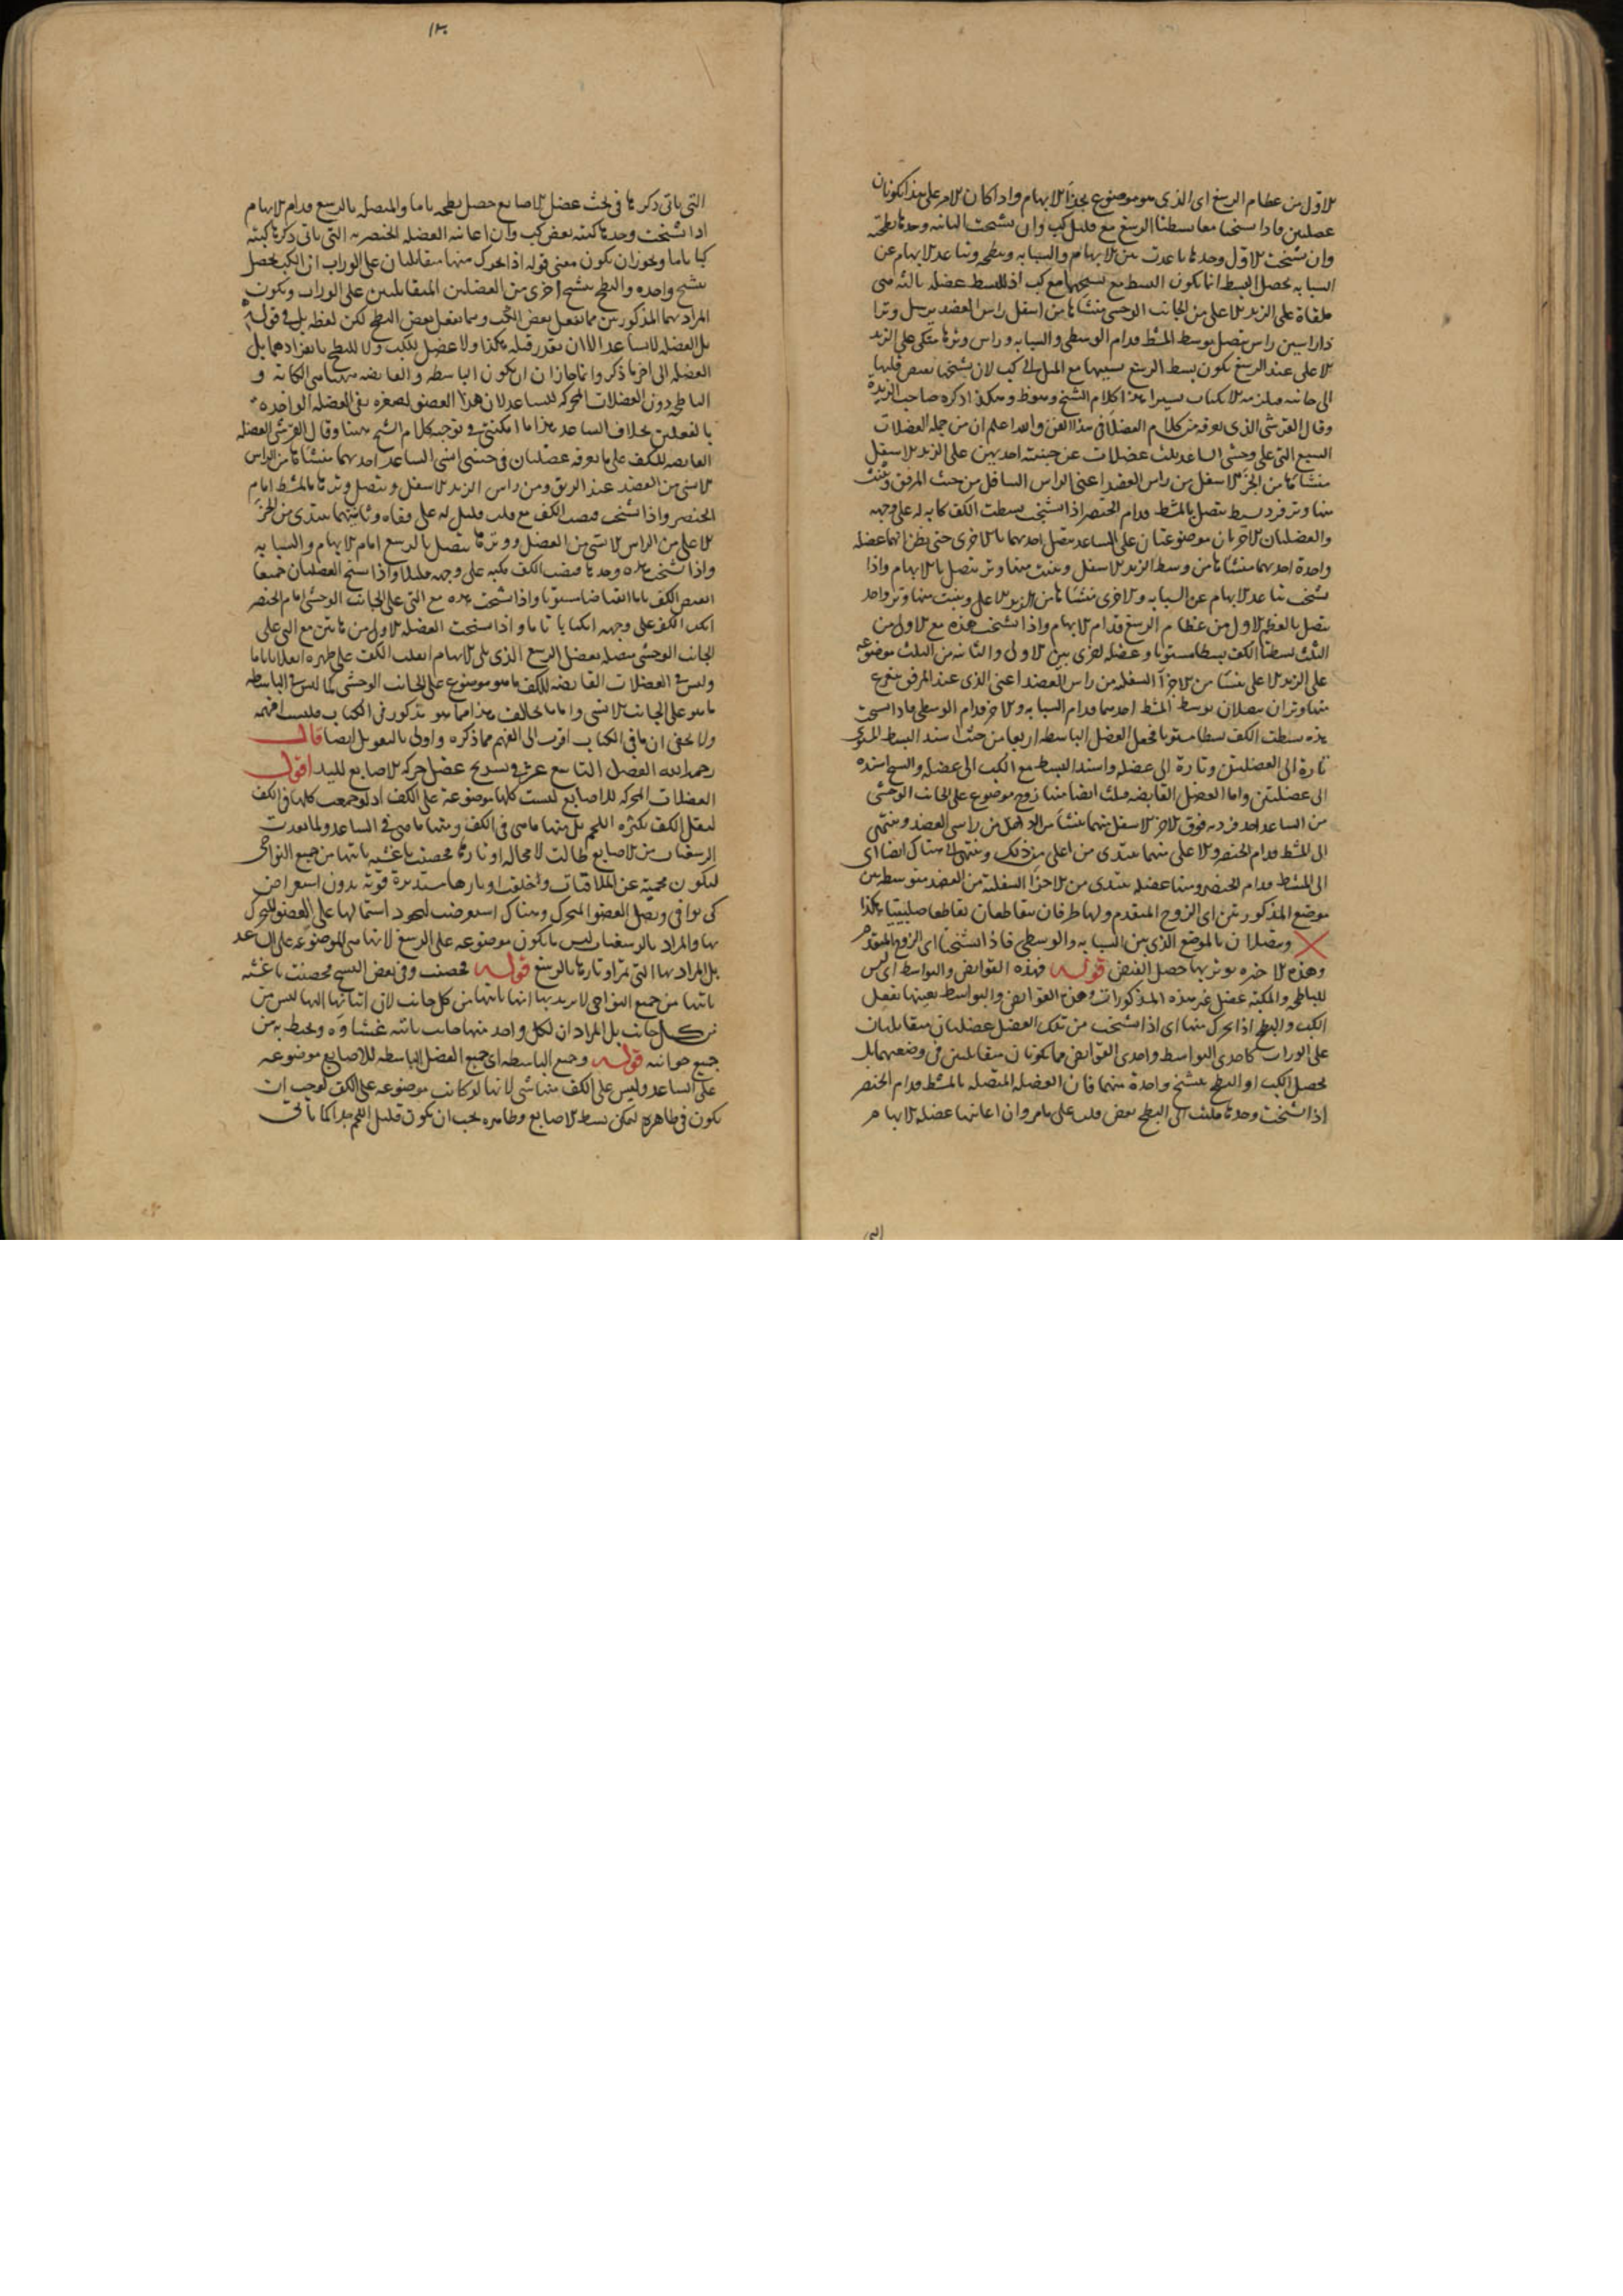 الاول من عظام الرسغ اى الذى هو موضوع بحذاء الابهام واذا كان الامر على هذا يكونان
عضلتين فاذا تشنجتا معا بسطتا الرسغ مع قليل كب وان تشنجت الثانيه وحدها بطحته
وان تشنجت الاول وحدها باعدت بين الابهام والسبابه وبطحه وتباعد الابهام عن
السبابه يحصل البسط انما يكون البسط مع تشنجهما مع كب اذ للبسط عضله ثالثه هى
ملقاة على الزند الاعلى من الجانب الوحشى منشاها من اسفل راس العضد يرسل وترا
ذا راسين راس يتصل بوسط المشط قدام الوسطى والسبابه وراس وترها متكى على الزند
الاعلى عند الرسغ يكون بسط الرسغ بسببها مع الميل الى كب لان تشنجها
الى جانبه فيلزمه الانكباب يسيرا هذا كلام الشيخ وهكذا ذكره صاحب الزبدة
وقال القرشى الذى نعرفه من كلام الفضلا فى هذا الفن والله اعلم ان من جمله العضلات
السبع التى على وحشى الساعد ثلث عضلات عن جنبته احديهن على الزند الاسفل
منشاها من الجزء الاسفل من راس العضد اعنى الراس السافل من حيث المرفق وينبت
منها وتر فرد بسيط يتصل بالمشط قدام الخنصر اذا تشنجت بسطت الكف كابه له على وجهه
والعضلتان الاخريان موضوعتان على الساعد متصل احدهما بالاخرى حتى يظن انهما عضله
واحدة احدهما منشاها من وسط الزند الاسفل وينبت منها وتر يتصل بالابهام واذا
تشنجت تباعد الابهام عن السبابه والاخرى منشاها من الزند الاعلى وينبت منها وتر واحد
يتصل بالعظم الاول من عظام الرسغ قدام الابهام واذا تشنجت هذه مع الاول من
الثلث بسطتا الكف بسطا مستويا وعضله اخرى بين الاولى والثانيه من الثلث موضوعه
على الزند الاعلى منشا من الاجزاء السفليه من راس العضد اعنى الذى عند المرفق يتفرع
منها وتران يتصلان بوسط المشط احدهما قدام السبابه والاخر قدام الوسطى فاذا تشنجت
هذه بسطت الكف بسطا مستويا فجعل العضل الباسطه اربعا من حيث اسند البسط المستوى
تارة الى العضلتين وتارة الى عضله واسند البسط مع الكب الى عضله والشيخ اسنده
الى عضلتين واما العضل القابضه فثلث ايضا منها زوج موضوع على الجانب الوحشى
من الساعد احد فرديه فوق الاخر الاسفل منهما ينشا من الراس الداخل من راسى العضد وينتهى
الى المشط قدام الخنصر والاعلى منهما يبتدى من اعلى من ذلك وينتهى الى هناك ايضا اى
الى المشط قدام الخنصر ومنها عضله تبتدى من الاجزاء السفلية من العضد متوسطه بين
موضع المذكورتين اى الزوج المتقدم ولها طرفان يتقاطعان تقاطعا صليبيا هكذا
ويتصلان بالموضع الذى بين السبابه والوسطى فاذا تشنجتا اى الزوج المتقدم
وهذه الاخيره بوتريها حصل القبض قوله فهذه القوابض والبواسط اى ليس
للباطحه والمكبه عضل غير هذه المذكورات وهذه القوابض والبواسط بعينها تفعل
الكب والبطح اذا تحرك منها اى اذا تشنجت من تلك العضل عضلتان متقابلتان
على الوراب كاحدى البواسط واحدى القوابض فما يكونان متقابلتين فى وضعيهما بل
يحصل الكب او البطح بتشنج واحدة منهما فان العضله المتصله بالمشط قدام الخنصر
اذا تشنجت وحدها قلبت الى البطح بعض قلب على مامر وان اعانتها عضله الابهام
التى
١٣٠
التى ياتى ذكرها فى بحث عضل الاصابع حصل بطحه تاما والمتصله بالرسغ قدام الابهام
اذا تشنجت وحدها كبته بعض كب وان اعانته العضله الخنصريه التى ياتى ذكرها كبته
كبا تاما ويجوز ان يكون معنى قوله اذا تحرك منها متقابلتان على الوراب ان الكب يحصل
بتشنج واحده والبطح بتشنج اخرى من العضلتين المتقابلتين على الوراب ويكون
المراد بهما المذكورتين مما يفعل بعض الكب ومما يفعل بعض البطح لكن لفظه بل فى قوله
بل العضله لا يساعد الا ان يقدر قبله هكذا ولا عضل للكب ولا للبطح بانفرادهما بل
العضله الى اخر ما ذكر وانما جاز ان يكون الباسطه والقابضه هنا هى الكابه و
الباطحه دون العضلات المحركه للساعد لان هذا العضو لصغره تفى العضله الواحده
بالفعلين بخلاف الساعد هذا ما امكننى فى توجيه كلام الشيخ هنا وقال القرشى العضله
القابضه للكف على ما نعرفه عضلتان فى جنبتى انسى الساعد احدهما منشاها من الراس
الانسى من العضد عند المرفق ومن راس الزند الاسفل ويتصل وترها بالمشط امام
الخنصر واذا تشنجت قبضت الكف مع قلب قليل له على قفاه وثانيتهما يبتدى من الجزء
الاعلى من الراس الانسى من العضد ووترها يتصل بالرسغ امام الابهام والسبابه
واذا تشنجت هذه وحدها قبضت الكف مكبه على وجهه قليلا واذا تشنج العضلتان جميعا
انقبض الكف تاما انقباضا مستويا واذا تشنجت هذه مع التى على الجانب الوحشى امام الخنصر
انكب الكف على وجهه انكبابا تاما واذا تشنجت العضله الاول من هاتين مع التى على
الجانب الوحشى متصله بعضل الرسغ الذى يلى الابهام انقلب الكف على ظهره انقلابا تاما
وليس فى العضلات القابضه للكف ما هو موضوع على الجانب الوحشى كما ليس فى الباسطه
ما هو على الجانب الانسى واما ما يخالف هذا مما هو مذكور فى الكتاب فلست افهمه
ولا يخفى ان ما فى الكتاب اقرب الى الفهم مما ذكره واولى بالتعويل ايضا قال
رحمه الله الفصل التاسع عشر فى تشريح عضل حركه الاصابع لليد اقول
العضلات المحركه للاصابع ليست كلها موضوعة على الكف اذ لو جمعت كلها فى الكف
لثقل الكف بكثره اللحم بل منها ما هى فى الكف ومنها ما هى فى الساعد ولما بعدت
الرسغيات من الاصابع طالت لا محاله اوتارها فحصنت باغشيه تاتيها من جميع النواحى
ليكون محميه عن الملاقيات واخلقت اوتارها مستديرة قويه بدون استعراض
كى توافى ويصل العضو المتحرك وهناك استعرضت ليجود اشتمالها على العضو المتحرك
بها والمراد بالرسغيات ليس ما يكون موضوعه على الرسغ لانها هى الموضوعه على الساعد
بل المراد بها التى تمر اوتارها بالرسغ قوله فحصنت وفى بعض النسخ محصنت باغشيه
تاتيها من جميع النواحى لا يريد بها انها تاتيها من كل جانب لان اتيانها اليها ليس من
كل جانب بل المراد ان لكل واحد منها جانب تاتيه غشاوه ويحيط به من
جميع جوانبه قوله وجميع الباسطه اى جميع العضل الباسطه للاصابع موضوعه
على الساعد وليس على الكف منها شى لانها لو كانت موضوعه على الكف لوجب ان
يكون فى ظاهره ليمكن بسط الاصابع وظاهره يجب ان يكون قليل اللحم جدا كما ياتى